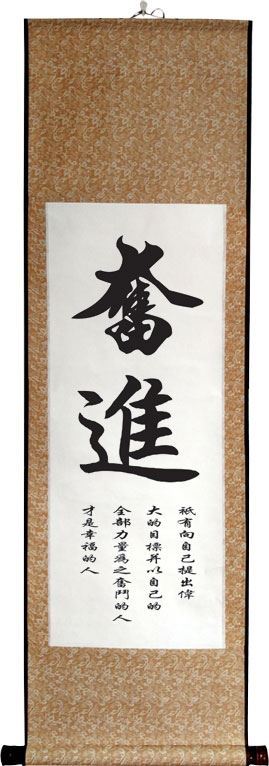 奮
進
祇有向自己提出偉
大的目標并以自己的
全部力量爲之奮鬥的人
才是幸福的人